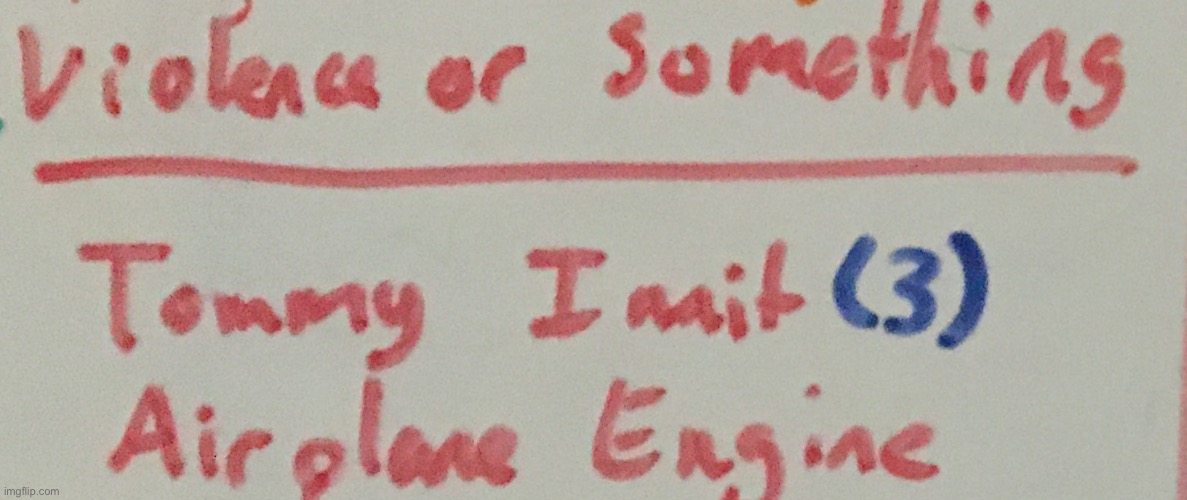 Violence or Something
Tommy Innit (3)
Airplane Engine
imgflip.com